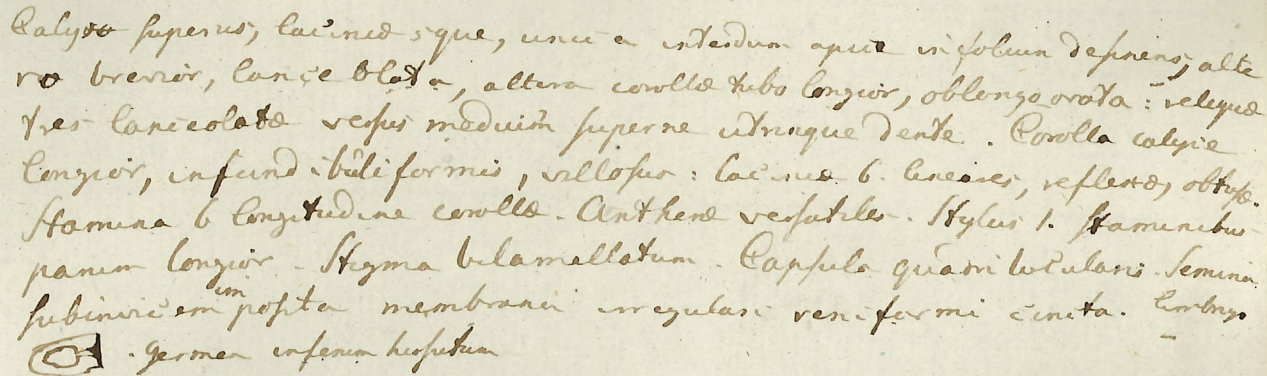 Calyx superus, laciniæ 5 que, una a interdum apice in folium desinens, alte
ra brevior, lanceolata, altera corollæ tubo longior, oblongo ovata: reliquæ
tres lanceolatæ versus medium superne utrinque dente. Corolla calyce
longior, infundibuliformis, villosus: laciniæ 6. lineares, reflexæ, obtusæ.
Stamina 6 longitudine corollæ. Antheræ versatiles. Stylus 1. staminibus
parum longior. Stigma bilamellatum. Capsula quasi locularis. Semina
subinvicem imposita membrana irregulari reniformi cincta. Embryo
. germen inferum hirsutum